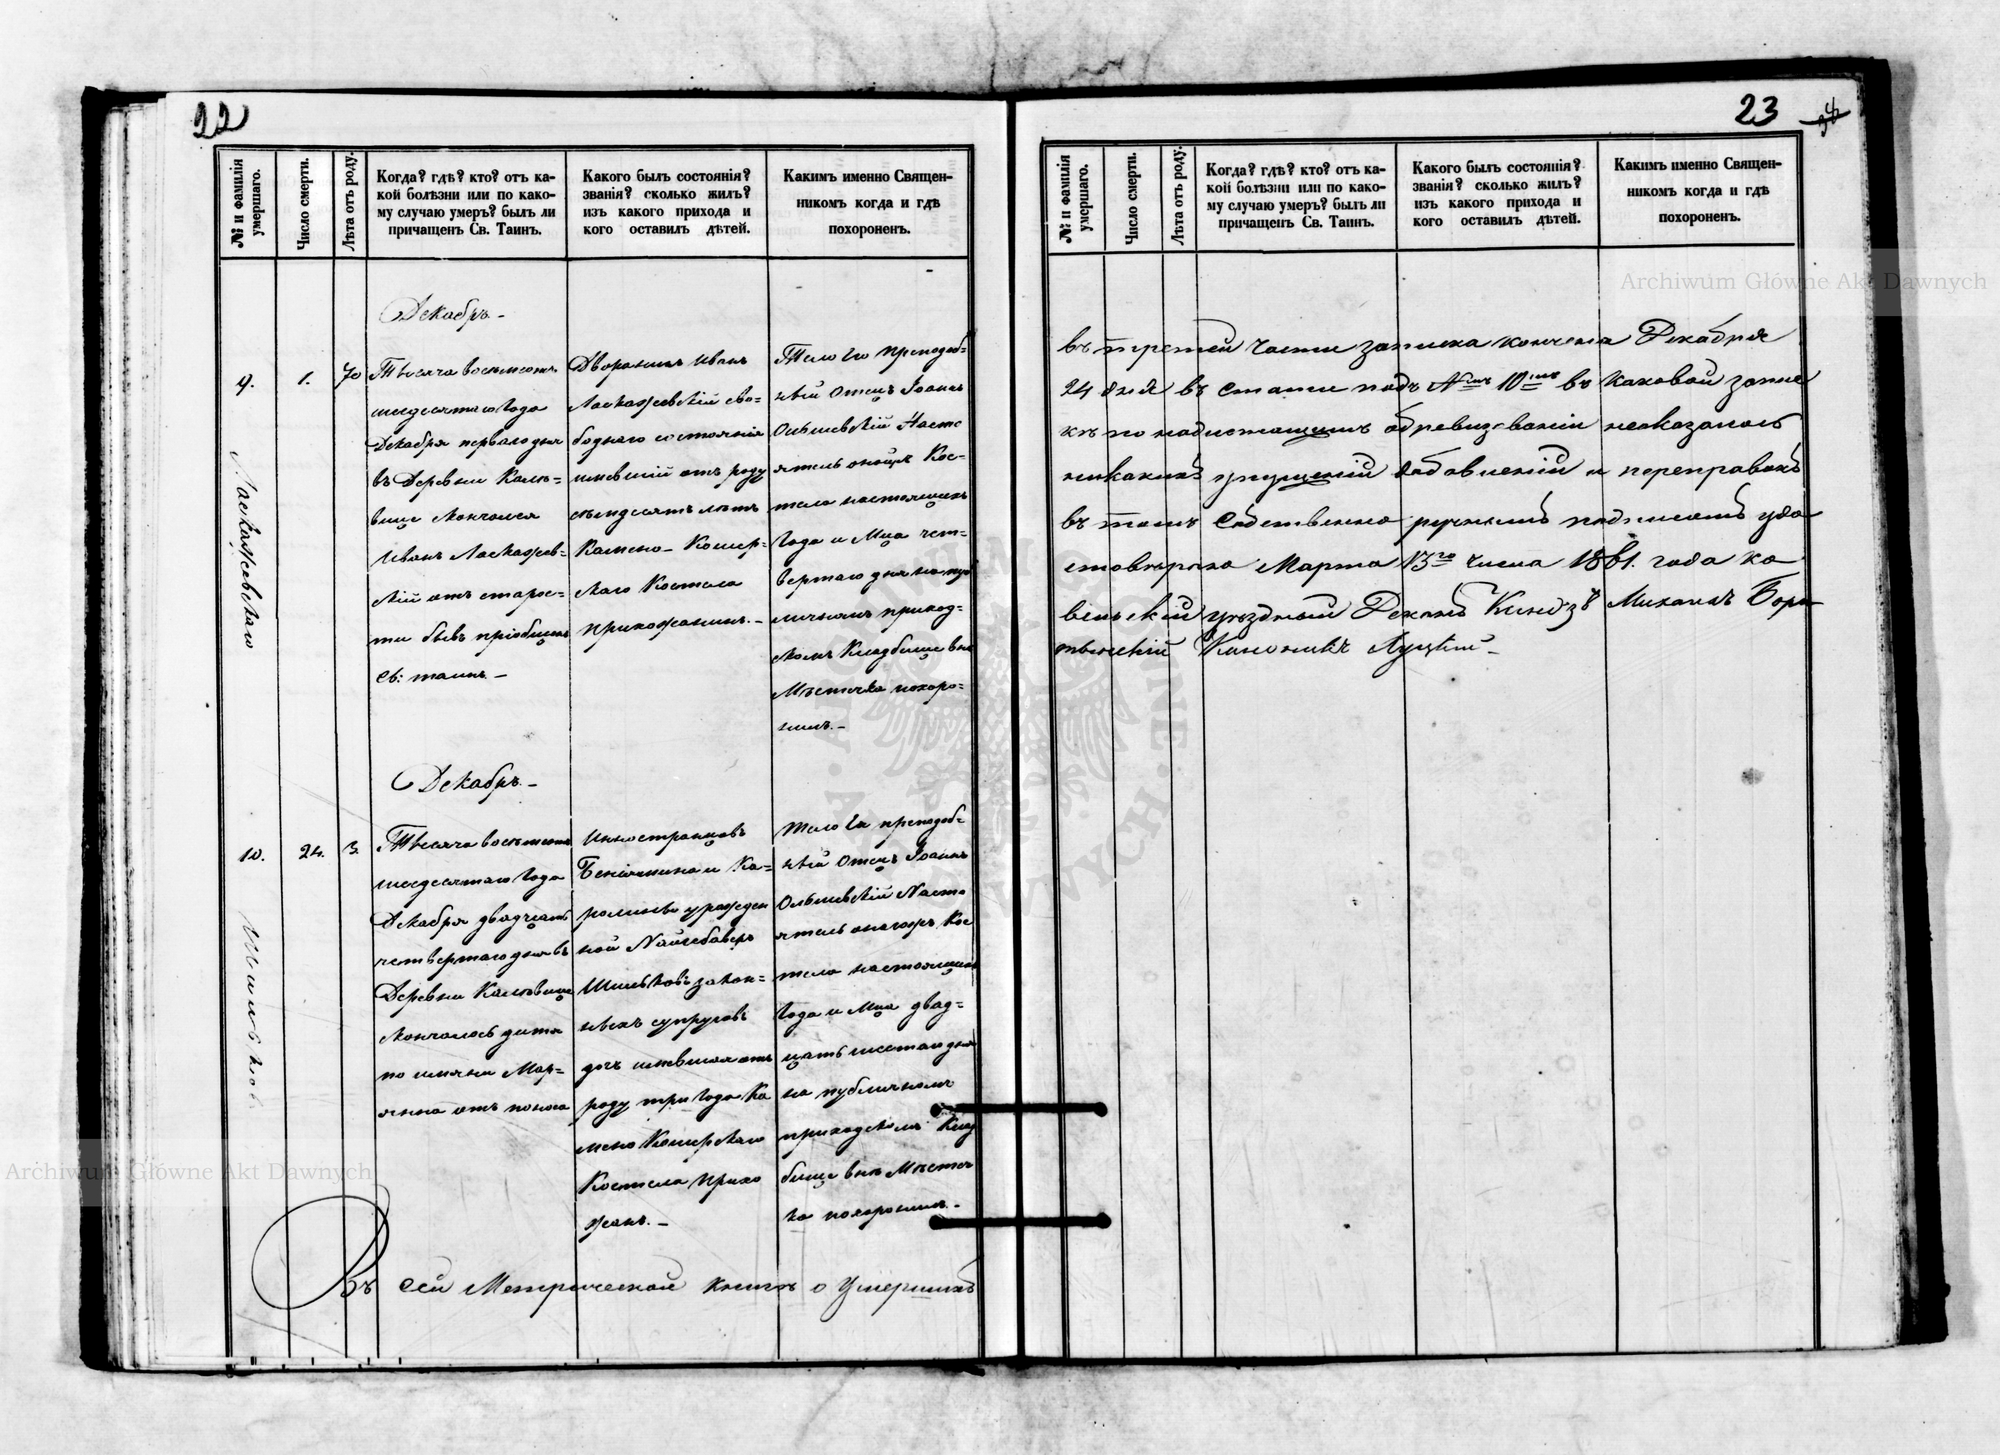 22
№ и фамилія умершаго.
Число смерти.
Лѣта отъ роду.
Когда? гдѣ? кто? отъ ка-
кой болѣзни или по како-
му случаю умеръ? былъ ли
причащенъ Св. Таинъ.
Какого былъ состоянія?
званія? сколько жилъ?
изъ какого прихода и
кого оставилъ дѣтей.
Какимъ именно Священ-
никомъ когда и гдѣ
похороненъ.
Декабрь. –
9.
1.
70
Тысяча восемсотъ
шесдесятаго Года
Декабря перваго дня
въ Деревни
скончался
Иванъ
скій отъ старос-
ти бывъ пріобщенъ
Св: таинъ. –
Дворянинъ Иванъ
сво-
боднаго состоянія
имевшій отъ роду
семдесятъ летъ
Камено-Кошир-
скаго Костела
прихожанинъ. –
Тело Его преподоб-
ный Отецъ Іоаннъ
Ольшевскій Насто
ятель оногожъ Кос-
тела настоящихъ
Года и Мца чет-
вертаго дня на пуб
личномъ приход-
скомъ Кладбище вне
Местечка похоро-
нилъ. –
Декабрь. –
10.
24.
3.
Тысяча восемсотъ
шесдесятаго Года
Декабря двадцать
четвертаго дня въ
Деревни
скончалось дитя
по имяни Мар-
янна отъ поноса
Иностранцовъ
Беніямина и Ка-
ролины урожден
ной
закон-
ныхъ супруговъ
дочь имевшая отъ
роду три Года Ка
мено Коширскаго
Костела Прихо
жанъ. –
Тело Ея преподоб-
ный Отецъ Іоаннъ
Ольшевскій Насто
ятель оногожъ Кос
тела настоящихъ
Года и Мца двад-
цать шестаго дня
на публичномъ
приходскомъ Клад
бище вне Местеч
ка похоронилъ. –
Въ сей Метрической книгѣ о Умершихъ
23
№ и фамилія умершаго.
Число смерти.
Лѣта отъ роду.
Когда? гдѣ? кто? отъ ка-
кой болѣзни или по како-
му случаю умеръ? былъ ли
причащенъ Св. Таинъ.
Какого былъ состоянія?
званія? сколько жилъ?
изъ какого прихода и
кого оставилъ дѣтей.
Какимъ именно Священ-
никомъ когда и гдѣ
похороненъ.
въ третей части записка кончена Декабря
24 дня въ статьи подъ №мъ 10мъ въ каковой запис
къ по надлежащемъ обревизованіи неоказалось
никакихъ упущеній добавленій и переправокъ
въ томъ собственно ручнымъ подписомъ удо
стовѣряю Марта 13го числа 1861. года ко
вельскій уѣздный Деканъ Ксіондзъ Михаилъ
Каноникъ Луцкій –
Archiwum Główne Akt Dawnych
Archiwum Główne Akt Dawnych